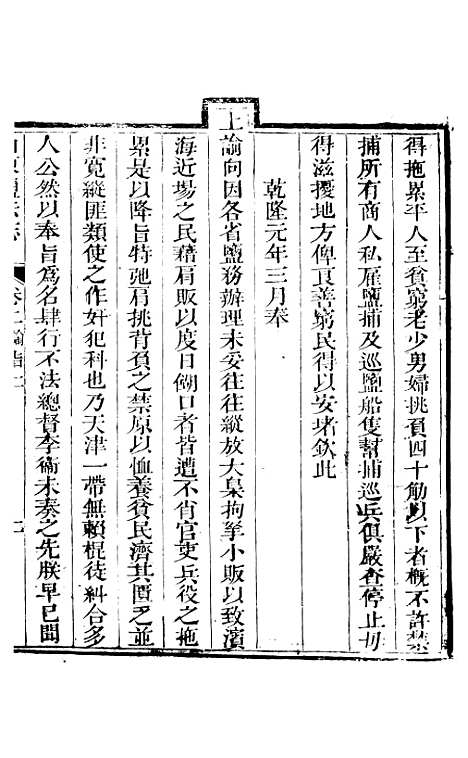 得拖累平人至貧窮老少男婦挑負四十觔以下者概不許禁
捕所有商人私雇鹽捕及巡鹽船隻幫捕巡兵俱嚴查停止毋
得滋擾地方俾良善窮民得以安堵欽此
乾隆元年三月奉
上諭向因各省鹽務辦理未妥往往縱放大梟拘拏小販以致濱
海近場之民藉肩販以度日餬口者皆遭不肖官吏兵役之拖
累是以降旨特弛肩挑背負之禁原以恤養貧民濟其匱乏並
非寬縱匪類使之作奸犯科也乃天津一帶無賴棍徒糾合多
人公然以奉旨爲名肆行不法總督李衞未奏之先朕早已聞
卷二諭旨二